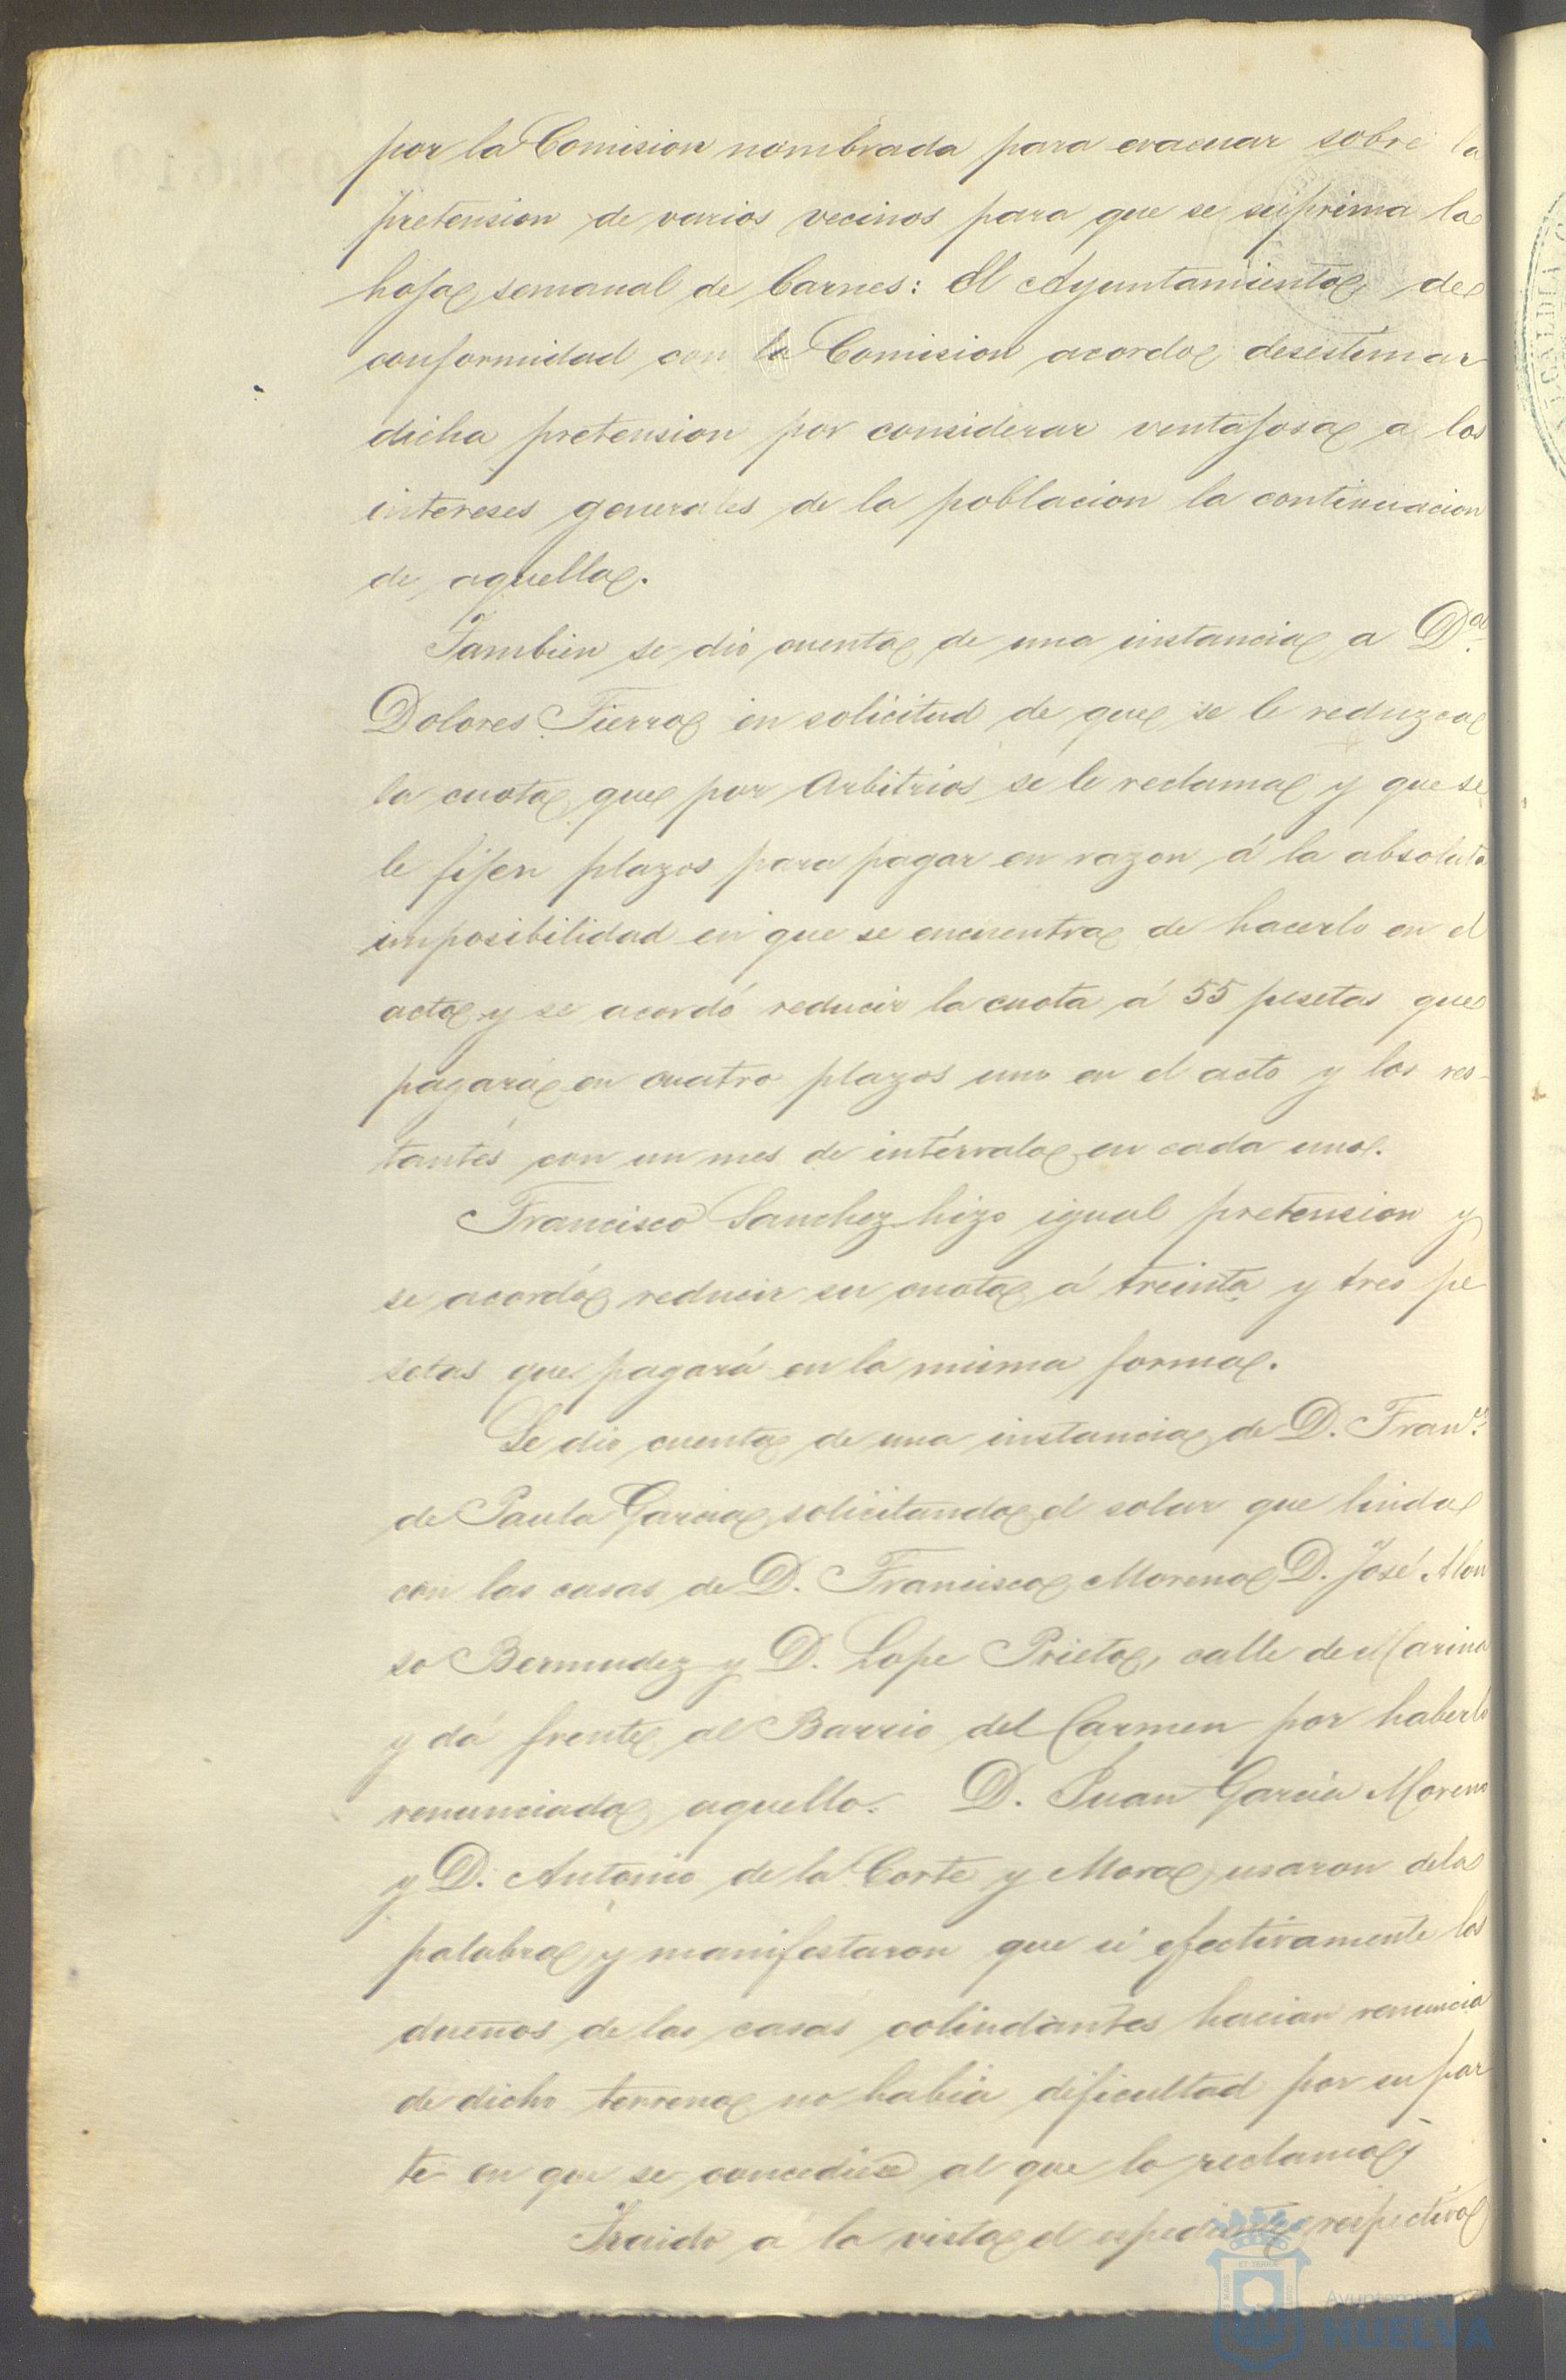 por la Comision nombrada para evacuar sobre la
pretension de varios vecinos para que se suprima la
hoja semanal de Carnes: El Ayuntamiento de
conformidad con la Comision acordo desestimar
dicha pretension por considerar ventajosa a los
intereses generales de la poblacion la continuacion
de aquella.
Tambien se dió cuenta de una instancia a D.ª
Dolores Fierro en solicitud de que se le reduzca
la cuota que por Arbitrios se le reclama y que se
le fijen plazos para pagar en razon á la absoluta
imposibilidad en que se encuentra de hacerlo en el
acto y se acordó reducir la cuota á 55 pesetas que
pagará en cuatro plazos uno en el acto y los res-
tantes con un mes de intérvalo en cada uno.
Francisco Sanchez hizo igual pretension y
se acordó reducir su cuota á treinta y tres pe
setas que pagará en la misma forma.
Se dio cuenta de una instancia de D. Fran.co
de Paula Garcia solicitando el solar que linda
con las casas de D. Francisco Moreno D. José Alon
so Bermudez y D. Lope Prieto, calle de Marina
y dá frente al Barrio del Carmen por haberlo
renunciado aquello. D. Juan Garcia Moreno
y D. Antonio de la Corte y Mora usaron de la
palabra y manifestaron que si efectivamente los
dueños de las casas colindantes hacian renuncia
de dicho terreno no habia dificultad por su par
te en que se concediese al que lo reclama
Traido a la vista el espediente respectivo
Ayuntamiento
HUELVA